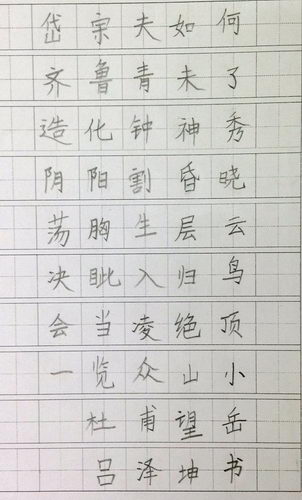 岱宗夫如何
齐鲁青未了
造化钟神秀
阴阳割昏晓
荡胸生层云
决眦入归鸟
会当凌绝顶
一览众山小
杜甫望岳
吕泽坤书